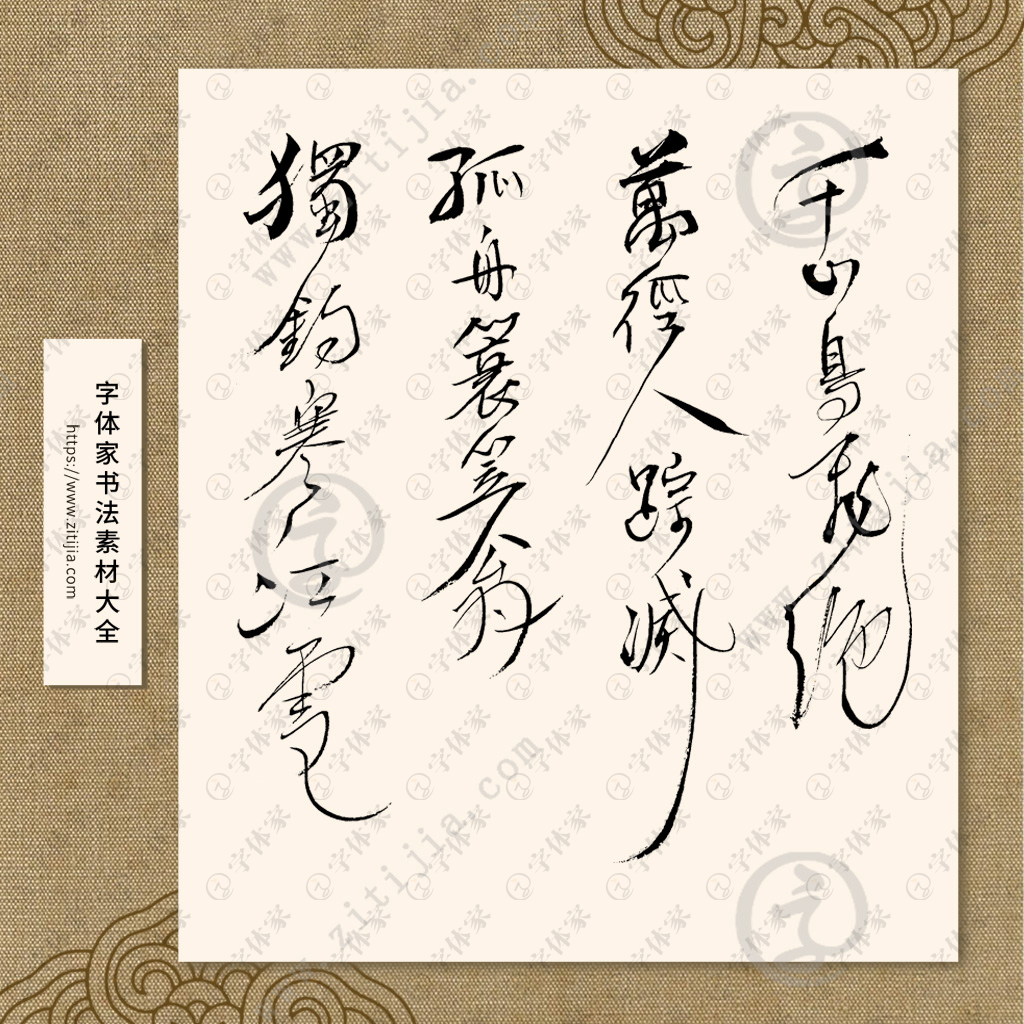 千山鳥飛絕
萬徑人踪滅
孤舟蓑笠翁
獨釣寒江雪
字体家书法素材大全
https://www.zitijia.com